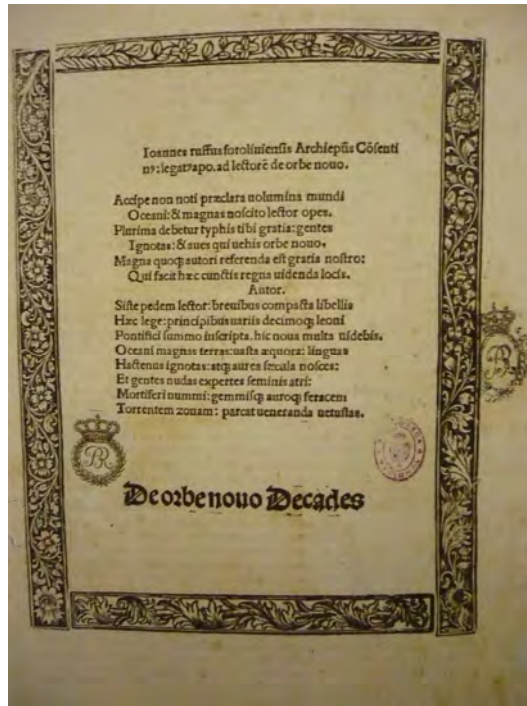 Ioannes ruffus foroliuiensis Archiep̃us Cõsenti
nꝰ: legatꝰ apo. ad lectorẽ de orbe nouo.
Accipe non noti præclara uolumina mundi
Oceani: & magnas noscito lector opes.
Plurima debetur typhis tibi gratia: gentes
Ignotas: & aues qui uehis orbe nouo.
Magna quoqꝫ autori referenda est gratia nostro:
Qui facit hæc cunctis regna uidenda locis.
Autor.
Siste pedem lector: breuibus compacta libellis
Hæc lege: principibus uariis decimoqꝫ leoni
Pontifici summo inscripta. hic noua multa uidebis.
Oceani magnas terras: uasta æquora: linguas
Hactenus ignotas: atqꝫ aurea sæcula nosces:
Et gentes nudas expertes seminis atri:
Mortiferi nummi: gemmisqꝫ auroqꝫ feracem
Torrentem zonam: parcat ueneranda uetustas.
De orbe nouo Decades